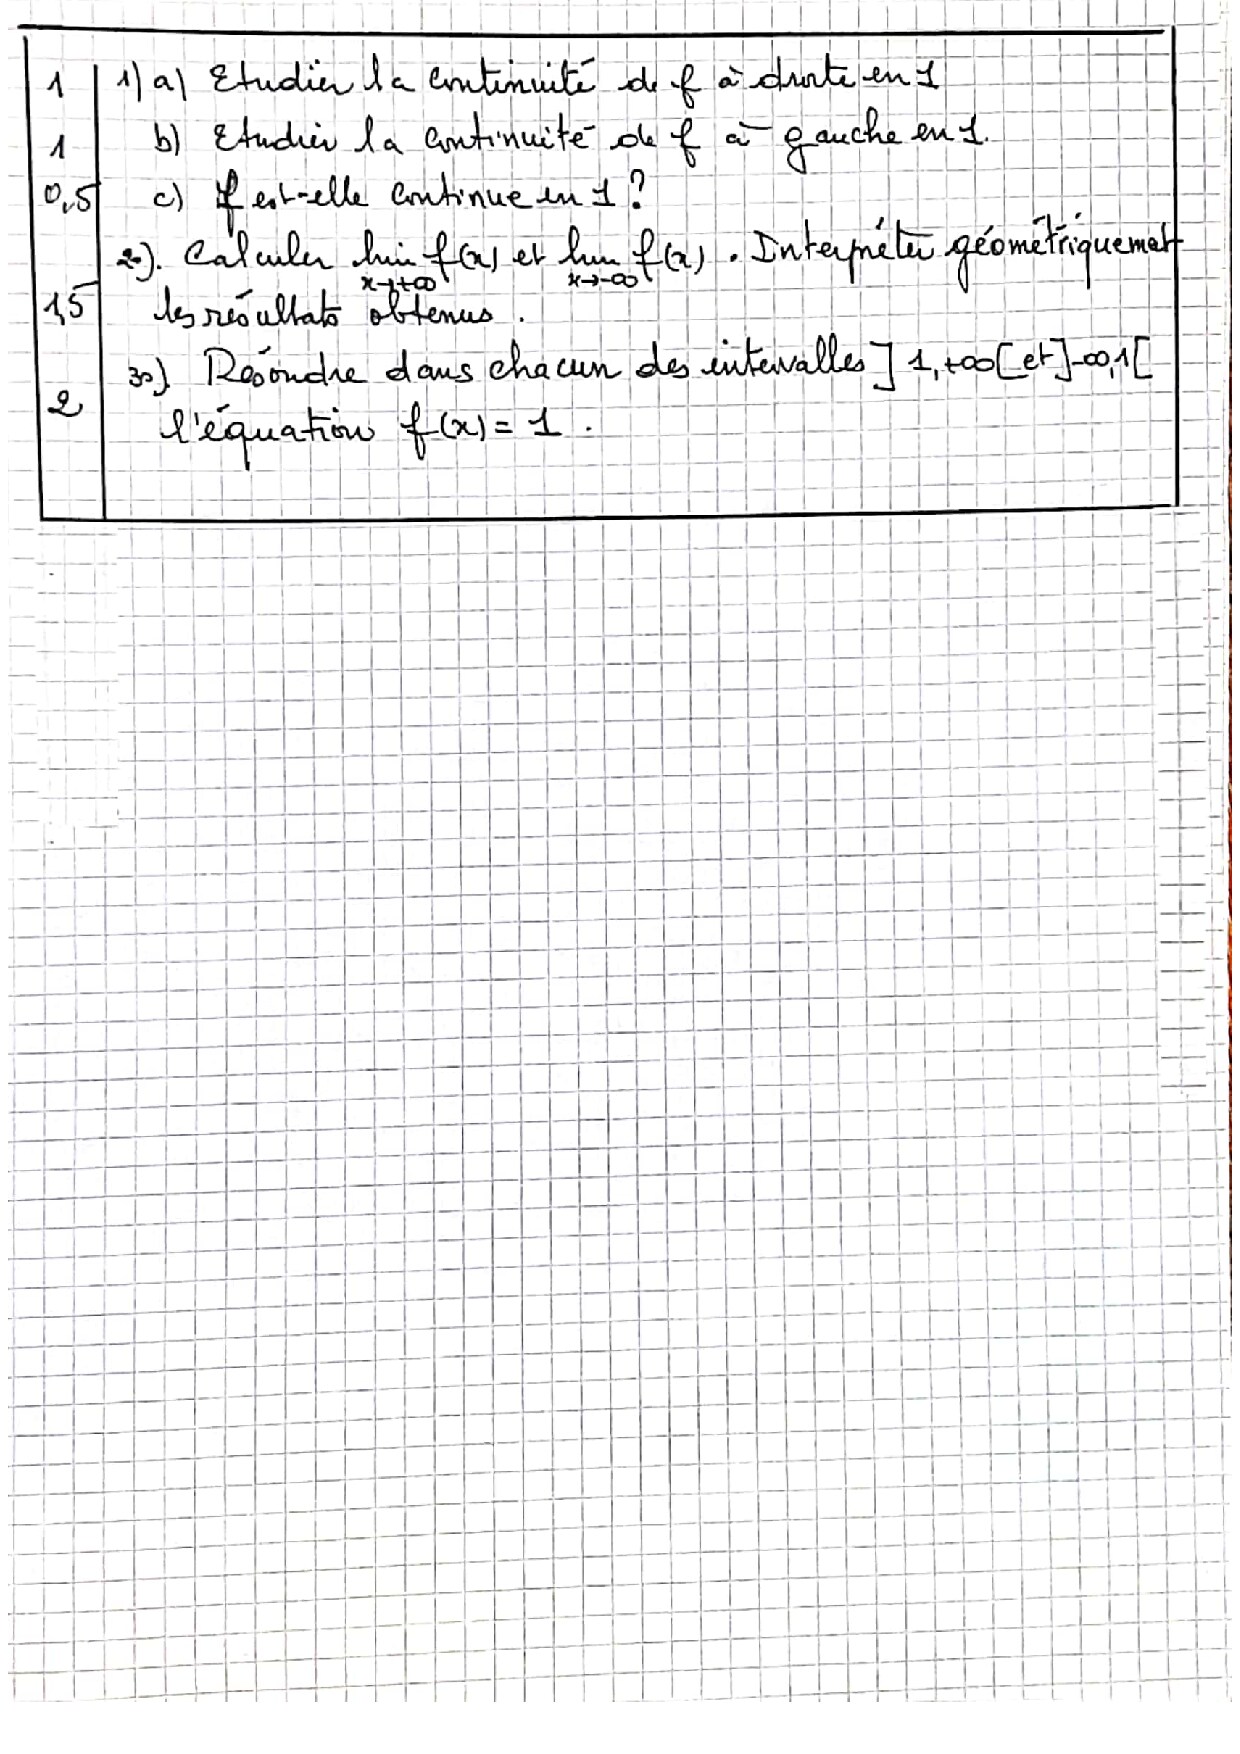 1 1) a) Etudier la continuité de f à droite en 1
1 b) Etudier la continuité de f à gauche en 1.
0,5 c) f est-elle continue en 1 ?
2°). Calculer lim f(x) et lim f(x) . Interpréter géométriquement
x→+∞ x→-∞
1,5 les résultats obtenus .
3°) Résoudre dans chacun des intervalles ] 1, +∞ [ et ] -∞, 1 [
2 l'équation f(x) = 1 .